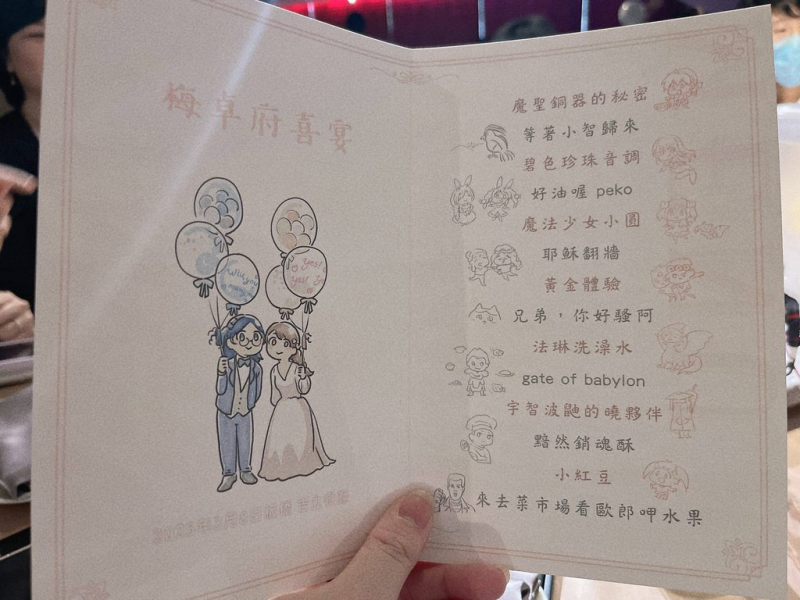 梅卓府喜宴
Yes!
魔聖銅器的秘密
等著小智歸來
碧色珍珠音調
好油喔 peko
魔法少女小圓
耶穌翻牆
黃金體驗
兄弟，你好騷阿
法琳洗澡水
gate of babylon
宇智波鼬的曉夥伴
黯然銷魂酥
小紅豆
來去菜市場看歐郎呷水果